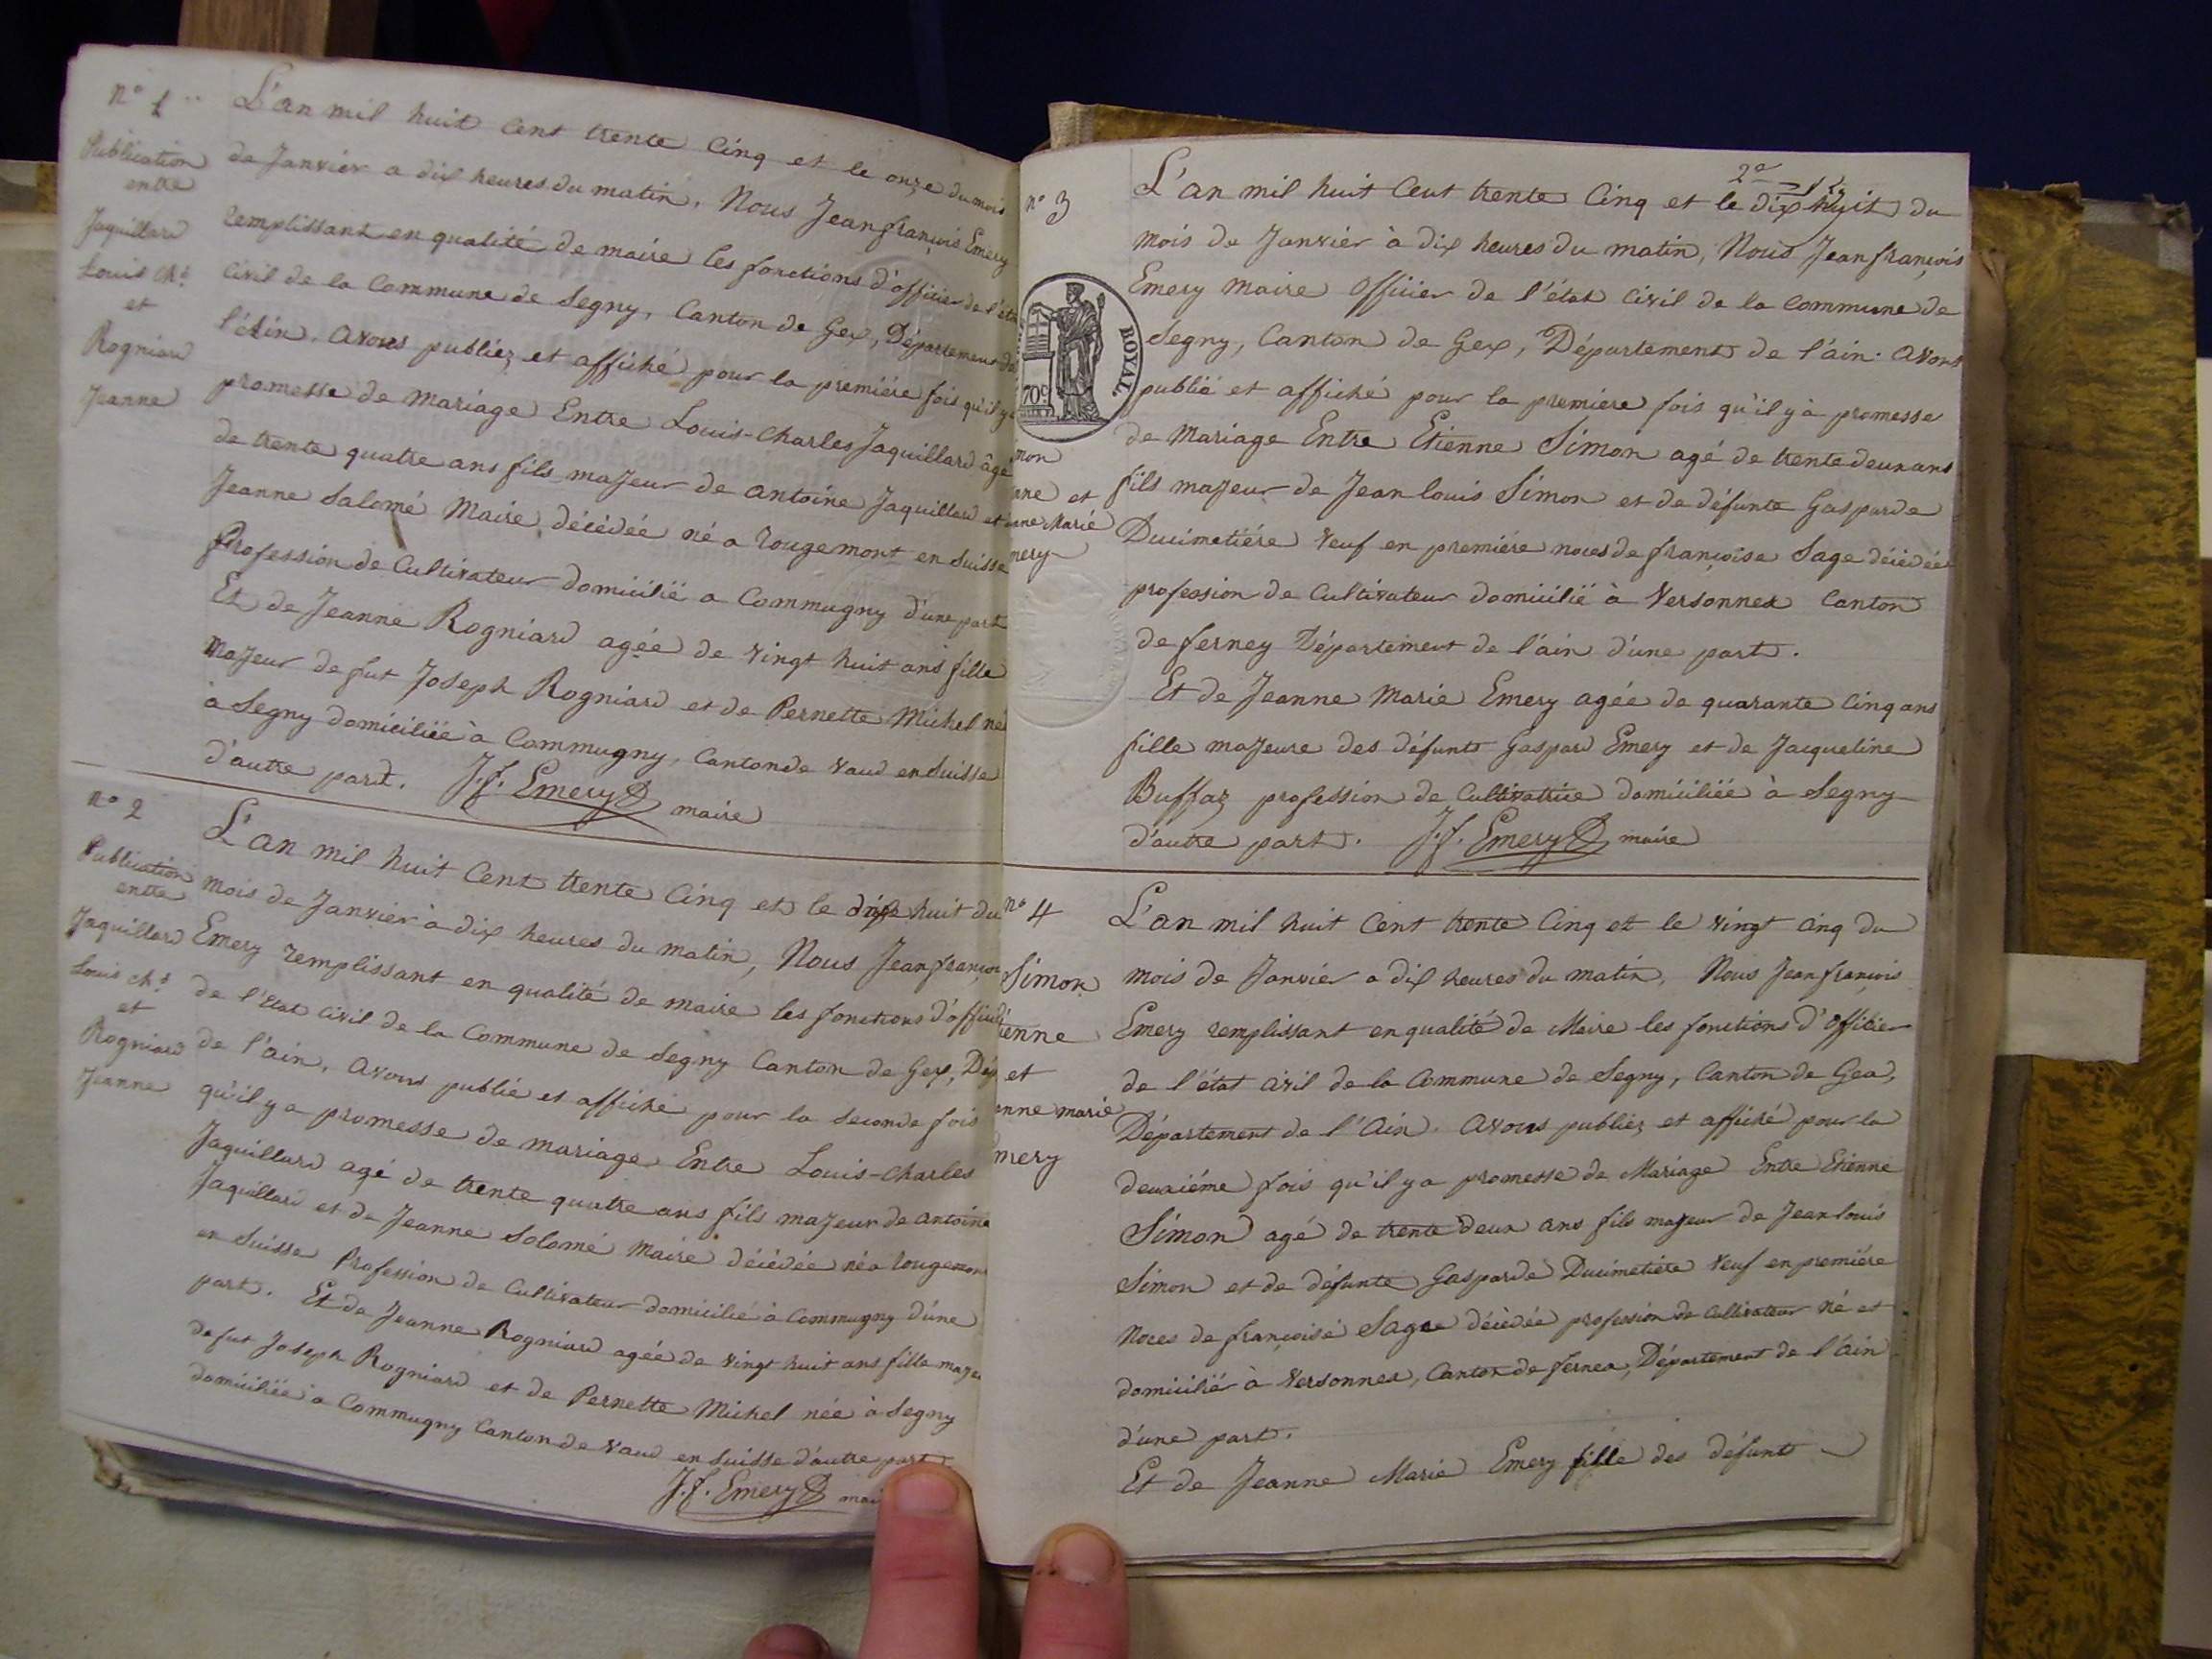 n° 1
Publication
entre
Jaquillard
Louis Ch.s
et
Rogniard
Jeanne
L'an mil huit Cent trente Cinq et le onze du mois
de Janvier a dix heures du matin, Nous Jean françois Emery
remplissant en qualité de maire les fonctions d'officier de l'éta
Civil de la Commune de Segny, Canton de Gex, Département de
l'Ain. avons publiez et affiché pour la premiére fois qu'il y a
promesse de mariage Entre Louis-Charles Jaquillard âgé
de trente quatre ans fils majeur de antoine Jaquillard et
Jeanne Salomé Maire décédée né a rougemont en Suisse
Profession de Cultivateur domicilié a Commugny d'une part
Et de Jeanne Rogniard agée de vingt huit ans fille
Majeur de fut Joseph Rogniard et de Pernette Michel né
à Segny domiciliée à Commugny, Canton de Vaud en Suisse
d'autre part. J.f. Emery maire
n° 2
Publication
entre
Jaquillard
Louis ch.s
et
Rogniard
Jeanne
L'an mil huit Cent trente Cinq et le dix huit du
mois de Janvier à dix heures du matin, Nous Jean françois
Emery remplissant en qualité de maire les fonctions d'officier
de l'Etat Civil de la Commune de Segny Canton de Gex, Dép
de l'ain, avons publié et affiché pour la seconde fois
qu'il y a promesse de mariage Entre Louis-Charles
Jaquillard agé de trente quatre ans fils majeur de antoine
Jaquillard et de Jeanne Solomé Maire décédée né a rougemon
en Suisse Profession de Cultivateur domicilié à Commugny d'une
part. Et de Jeanne Rogniard agée de vingt huit ans fille maje
de fut Joseph Rogniard et de Pernette Michel née à Segny
domiciliée à Commugny Canton de Vaud en Suisse d'autre part
J.f. Emery mai
n° 3
ROYAL
70c
mon
nne et
nne Marie
mery
L'an mil huit Cent trente Cinq et le dix huit du
mois de Janvier à dix heures du matin, Nous Jean françois
Emery Maire Officier de l'état Civil de la Commune de
Segny, Canton de Gex, Département de l'ain. avons
publié et affiché pour la premiére fois qu'il y à promesse
de Mariage Entre Etienne Simon agé de trente deux ans
fils majeur de Jean louis Simon et de défunte Gasparde
Ducimetiére Veuf en premiére noces de françoise Sage décédée
profession de Cultivateur domicilié à Versonnex Canton
de ferney Département de l'ain d'une part.
Et de Jeanne Marie Emery agée de quarante Cinq ans
fille majeure des défunts Gaspard Emery et de Jacqueline
Buffaz profession de Cultivatrice domiciliée à Segny
d'autre part. J.f. Emery maire
n° 4
Simon
tienne
et
anne marie
mery
L'an mil huit Cent trente Cinq et le vingt cinq du
mois de Janvier a dix heures du matin, Nous Jean françois
Emery remplissant en qualité de Maire les fonctions d'Officier
de l'état Civil de la Commune de Segny, Canton de Gex,
Département de l'Ain. avons publiez et affiché pour la
deuxiéme fois qu'il y a promesse de Mariage Entre Etienne
Simon agé de trente deux ans fils majeur de Jean louis
Simon et de défunte Gasparde Ducimetiére Veuf en premiére
Noces de françoise Sage décédée profession de Cultivateur né et
domicilié à Versonnex, Canton de fernex, Département de l'Ain
d'une part.
Et de Jeanne Marie Emery fille des défunts